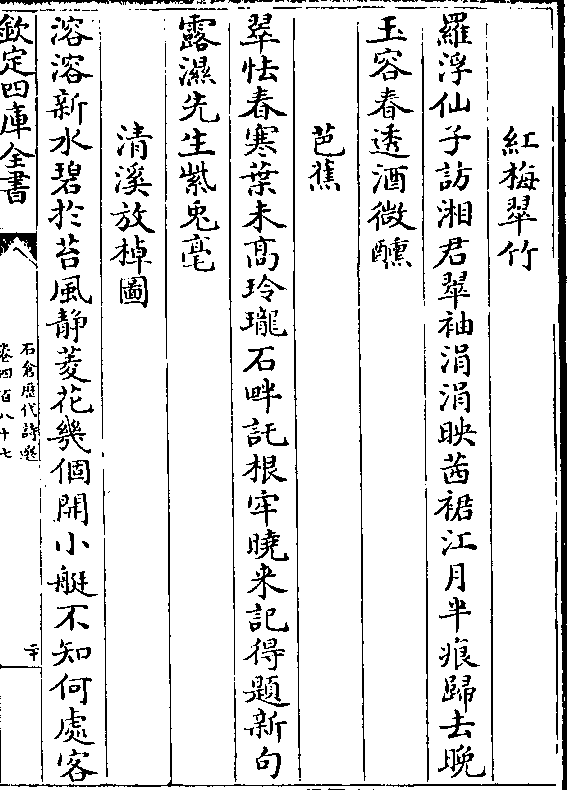 紅梅翠竹
羅浮仙子訪湘君翠袖涓涓映茜裙江月半痕歸去晚
玉容春透酒微醺
芭蕉
翠怯春寒葉未髙玲瓏石畔託根牢曉来記得題新句
露濕先生紫兎毫
清溪放棹圖
溶溶新水碧於苔風静菱花幾個開小艇不知何處客
欽定四庫全書
石倉歴代詩選
卷四百八十七
二十